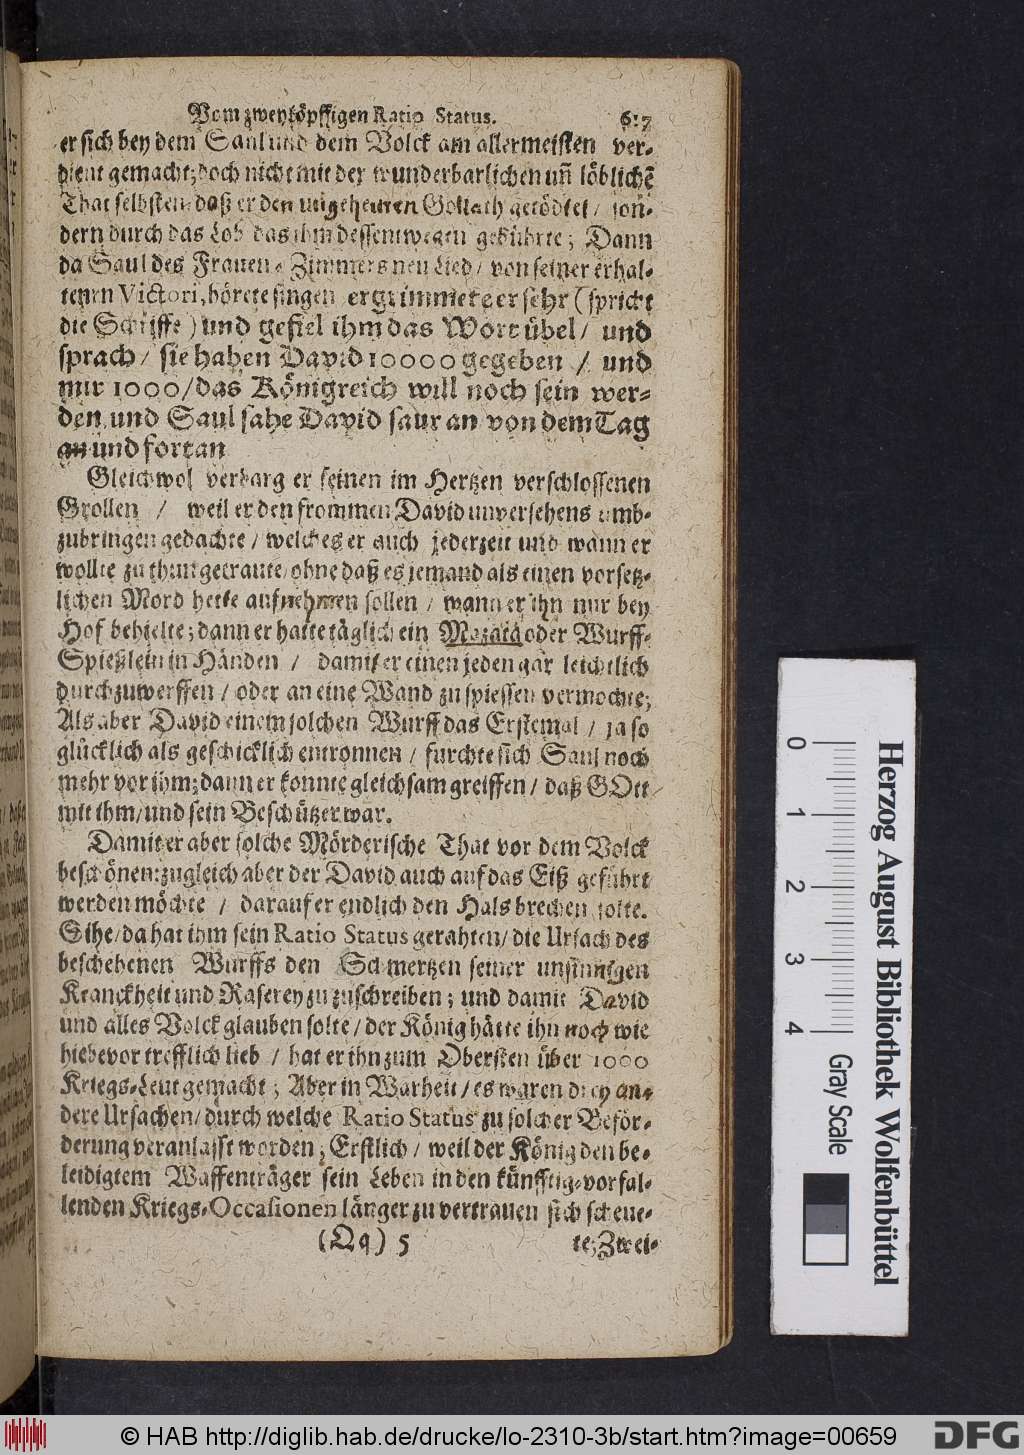 Vom zweyköpffigen Ratio Status. 617
er sich bey dem Saul und dem Volck am allermeisten ver-
dient gemacht; doch nicht mit der wunderbarlichen uñ löblichẽ
That selbsten, daß er den ungeheuren Goliath getödtet / son-
dern durch das Lob das ihm dessentwegen gebührte; Dann
da Saul des Frauen-Zimmers neu Lied / von seiner erhal-
tenen Victori, hörete singen ergrimmete er sehr (spricht
die Schrifft) und gefiel ihm das Wort übel / und
sprach / sie haben David 10000 gegeben / und
mir 1000 / das Königreich will noch sein wer-
den, und Saul sahe David saur an von dem Tag
an und fortan
Gleichwol verbarg er seinen im Hertzen verschlossenen
Grollen / weil er den frommen David unversehens umb-
zubringen gedachte / welches er auch jederzeit und wann er
wollte zu thun getraute / ohne daß es jemand als einen vorsetz-
lichen Mord hette aufnehmen sollen / wann er ihn nur bey
Hof behielte; dann er hatte täglich ein Mazara oder Wurff-
Spießlein in Händen / damit er einen jeden gar leichtlich
durchzuwerffen / oder an eine Wand zu spiessen vermochte;
Als aber David einem solchen Wurff das Erstemal / ja so
glücklich als geschicklich entronnen / furchte sich Saul noch
mehr vor ihm; dann er konnte gleichsam greiffen / daß GOtt
mit ihm / und sein Beschützer war.
Damit er aber solche Mörderische That vor dem Volck
beschönen: zugleich aber der David auch auf das Eiß geführt
werden möchte / darauf er endlich den Hals brechen solte.
Sihe / da hat ihm sein Ratio Status gerahten / die Ursach des
beschehenen Wurffs den Schmertzen seiner unsinnigen
Kranckheit und Raserey zu zuschreiben; und damit David
und alles Volck glauben solte / der König hätte ihn noch wie
hiebevor trefflich lieb / hat er ihn zum Obersten über 1000
Kriegs-Leut gemacht; Aber in Warheit / es waren drey an-
dere Ursachen / durch welche Ratio Status zu solcher Beför-
derung veranlasst worden; Erstlich / weil der König den be-
leidigtem Waffenträger sein Leben in den künfftig-vorfal-
lenden Kriegs-Occasionen länger zu vertrauen sich scheue-
(Qq) 5 te; Zwei-
0 1 2 3 4
Gray Scale
Herzog August Bibliothek Wolfenbüttel
© HAB http://diglib.hab.de/drucke/lo-2310-3b/start.htm?image=00659
DFG